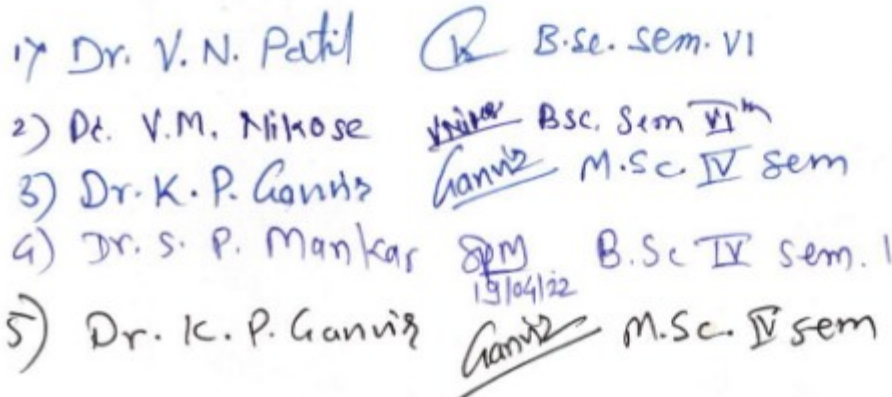 1) Dr. V. N. Patil B.Sc. Sem. VI
2) Dr. V.M. Nikose BSC. Sem VIth
3) Dr. K. P. Ganvir Ganvir M.Sc. IV Sem
4) Dr. S. P. Mankar SPM B.Sc IV sem. 1
19/04/22
5) Dr. K. P. Ganvir Ganvir M.Sc. IV sem